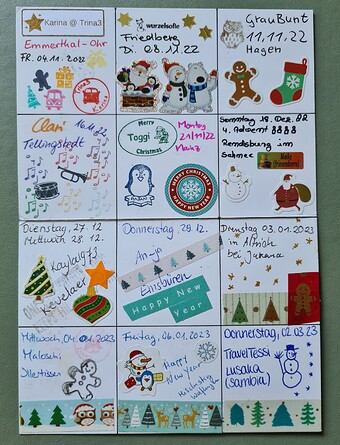 Karina @ Trina3
Emmerthal - Ohr
FR. 04.11.2022
wurzelsofie
Friedberg
Di. 08.11.22
GrauBunt
11.11.22
Hagen
Clari 16.11.22
Tellingstedt
Merry
Toggi
Christmas
Montag
21.11.22
Mainz
MERRY CHRISTMAS
HAPPY NEW YEAR
Sonntag 18. Dez. 22
4. Advent
Rendsburg im
Schnee
Dienstag, 27.12
Mittwoch 28.12.
Kevelaer
Donnerstag, 29.12.
Anja
Ensbüren
Happy New
Year
Dienstag 03.01.2023
in
bei
Mittwoch, 04.01.2023
Maloschi
Illertissen
Freitag, 06.01.2023
Happy
New Year
Donnerstag, 02.03.23
TravelTessi
Lusaka
(Sambia)